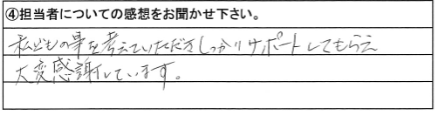 ④担当者についての感想をお聞かせ下さい。
私どもの事を考えていただきしっかりサポートしてもらえ
大変感謝しています。